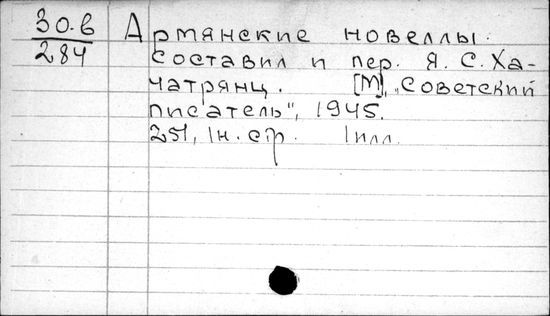 30.в
284
Армянские новеллы.
Составил и пер. Я. С. Ха-
чатрянц. [М], „Советский
писатель", 1945.
251, 1н. стр. 1 илл.